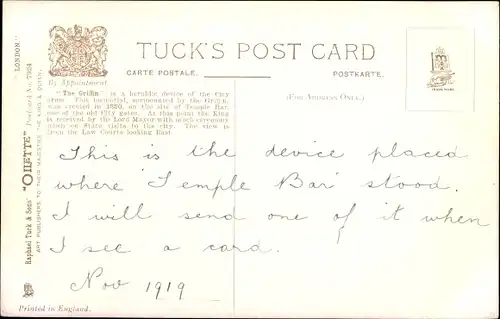 TUCK'S POST CARD
CARTE POSTALE.
POSTKARTE.
By Appointment
(FOR ADDRESS ONLY.)
"The Griffin" is a heraldic device of the City
arms. This memorial, surmounted by the Griffin,
was erected in 1880, on the site of Temple Bar,
one of the old City gates. At this point the King
is received by the Lord Mayor with much ceremony
when on State visits to the city. The view is
from the Law Courts looking East.
This is the device placed
where 'Temple Bar' stood.
I will send one of it when
I see a card.
Nov 1919
Raphael Tuck & Sons' "OILETTE" Postcard 7924 LONDON."
ART PUBLISHERS TO THEIR MAJESTIES THE KING & QUEEN.
Printed in England.